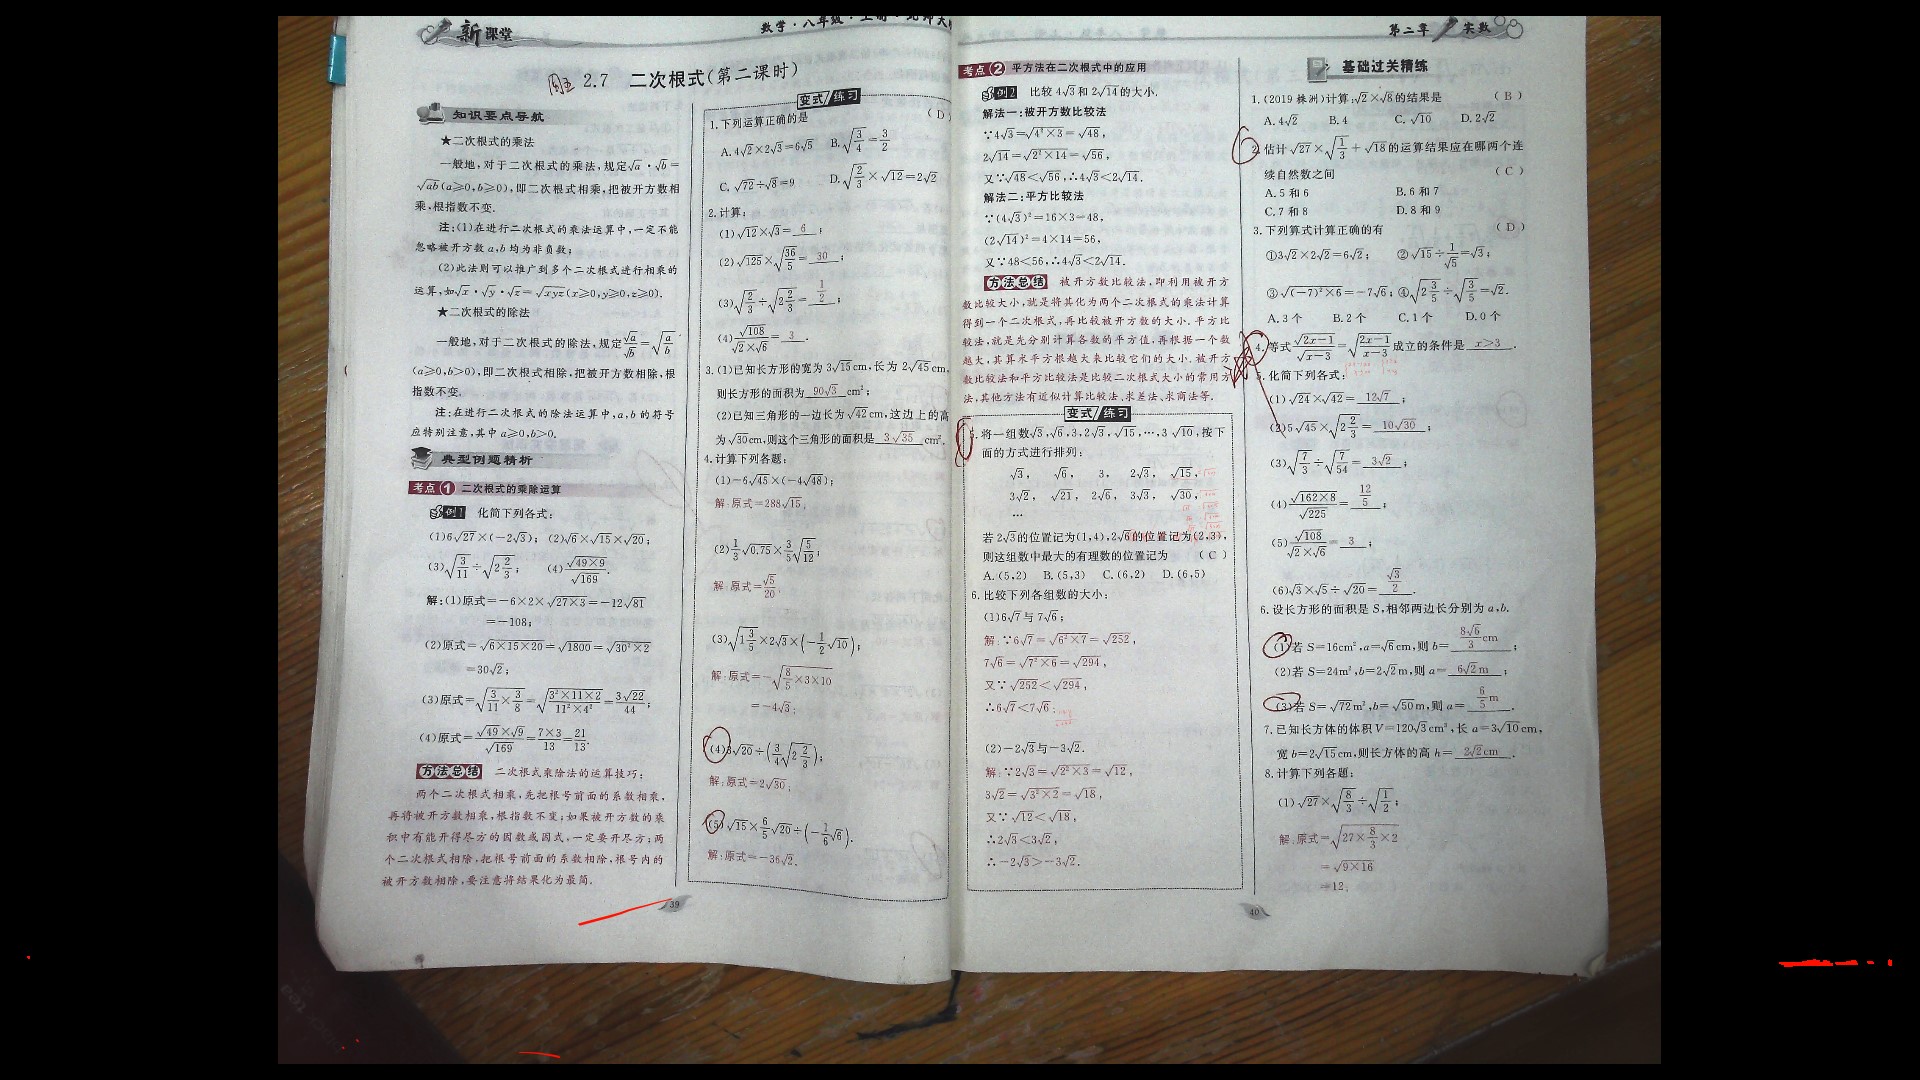 新课堂
数学·八年级·上册·北师大
周五 2.7 二次根式(第二课时)
知识要点导航
★二次根式的乘法
一般地,对于二次根式的乘法,规定√a·√b=
√ab(a≥0,b≥0),即二次根式相乘,把被开方数相
乘,根指数不变.
注:(1)在进行二次根式的乘法运算中,一定不能
忽略被开方数a,b均为非负数;
(2)此法则可以推广到多个二次根式进行相乘的
运算,如√x·√y·√z=√xyz(x≥0,y≥0,z≥0).
★二次根式的除法
一般地,对于二次根式的除法,规定√a/√b=√(a/b)
(a≥0,b>0),即二次根式相除,把被开方数相除,根
指数不变.
注:在进行二次根式的除法运算中,a,b的符号
应特别注意,其中a≥0,b>0.
典型例题精析
考点1 二次根式的乘除运算
例1 化简下列各式:
(1)6√27×(-2√3); (2)√6×√15×√20;
(3)√(3/11)÷√(2 2/3); (4)√(49×9)/√169.
解:(1)原式=-6×2×√(27×3)=-12√81
=-108;
(2)原式=√(6×15×20)=√1800=√(30²×2)
=30√2;
(3)原式=√(3/11×3/8)=√((3²×11×2)/(11²×4²))=3√22/44;
(4)原式=(√49×√9)/√169=(7×3)/13=21/13.
方法总结 二次根式乘除法的运算技巧:
两个二次根式相乘,先把根号前面的系数相乘,
再将被开方数相乘,根指数不变;如果被开方数的乘
积中有能开得尽方的因数或因式,一定要开尽方;两
个二次根式相除,把根号前面的系数相除,根号内的
被开方数相除,要注意将结果化为最简.
变式/练习
1.下列运算正确的是 (D)
A.4√2×2√3=6√5 B.√(3/4)=3/2
C.√72÷√8=9 D.√(2/3)×√12=2√2
2.计算:
(1)√12×√3=6;
(2)√125×√(36/5)=30;
(3)√(2/3)÷√(2 2/3)=1/2;
(4)√108/(√2×√6)=3.
3.(1)已知长方形的宽为3√15cm,长为2√45cm,
则长方形的面积为90√3cm²;
(2)已知三角形的一边长为√42cm,这边上的高
为√30cm,则这个三角形的面积是3√35cm².
4.计算下列各题:
(1)-6√45×(-4√48);
解:原式=288√15;
(2)1/3√0.75×3/5√(5/12);
解:原式=√5/20;
(3)√(1 3/5)×2√3×(-1/2√10);
解:原式=-√(8/5×3×10)
=-4√3;
(4)3√20÷(3/4√(2 2/3));
解:原式=2√30;
(5)√15×6/5√20÷(-1/6√6).
解:原式=-36√2.
39
第二章 实数
考点2 平方法在二次根式中的应用
例2 比较4√3和2√14的大小.
解法一:被开方数比较法
∵4√3=√(4²×3)=√48,
2√14=√(2²×14)=√56,
又∵√48<√56,∴4√3<2√14.
解法二:平方比较法
∵(4√3)²=16×3=48,
(2√14)²=4×14=56,
又∵48<56,∴4√3<2√14.
方法总结 被开方数比较法,即利用被开方
数比较大小,就是将其化为两个二次根式的乘法计算
得到一个二次根式,再比较被开方数的大小.平方比
较法,就是先分别计算各数的平方值,再根据一个数
越大,其算术平方根越大来比较它们的大小.被开方
数比较法和平方比较法是比较二次根式大小的常用方
法,其他方法有近似计算比较法、求差法、求商法等.
变式/练习
5.将一组数√3,√6,3,2√3,√15,…,3√10,按下
面的方式进行排列:
√3, √6, 3, 2√3, √15,
3√2, √21, 2√6, 3√3, √30,
…
若2√3的位置记为(1,4),2√6的位置记为(2,3),
则这组数中最大的有理数的位置记为 (C)
A.(5,2) B.(5,3) C.(6,2) D.(6,5)
6.比较下列各组数的大小:
(1)6√7与7√6;
解:∵6√7=√(6²×7)=√252,
7√6=√(7²×6)=√294,
又∵√252<√294,
∴6√7<7√6;
(2)-2√3与-3√2.
解:∵2√3=√(2²×3)=√12,
3√2=√(3²×2)=√18,
又∵√12<√18,
∴2√3<3√2,
∴-2√3>-3√2.
基础过关精练
1.(2019株洲)计算:√2×√8的结果是 (B)
A.4√2 B.4 C.√10 D.2√2
2.估计√27×√(1/3)+√18的运算结果应在哪两个连
续自然数之间 (C)
A.5和6 B.6和7
C.7和8 D.8和9
3.下列算式计算正确的有 (D)
①3√2×2√2=6√2; ②√15÷1/√5=√3;
③√((-7)²×6)=-7√6;④√(2 3/5)÷√(3/5)=√2.
A.3个 B.2个 C.1个 D.0个
4.等式√(2x-1)/√(x-3)=√((2x-1)/(x-3))成立的条件是x>3.
5.化简下列各式:
(1)√24×√42=12√7;
(2)5√45×√(2 2/3)=10√30;
(3)√(7/3)÷√(7/54)=3√2;
(4)√(162×8)/√225=12/5;
(5)√108/(√2×√6)=3;
(6)√3×√5÷√20=√3/2.
6.设长方形的面积是S,相邻两边长分别为a,b.
(1)若S=16cm²,a=√6cm,则b=8√6/3cm;
(2)若S=24m²,b=2√2m,则a=6√2m;
(3)若S=√72m²,b=√50m,则a=6/5m.
7.已知长方体的体积V=120√3cm³,长a=3√10cm,
宽b=2√15cm,则长方体的高h=2√2cm.
8.计算下列各题:
(1)√27×√(8/3)÷√(1/2);
解:原式=√(27×8/3×2)
=√(9×16)
=12;
40